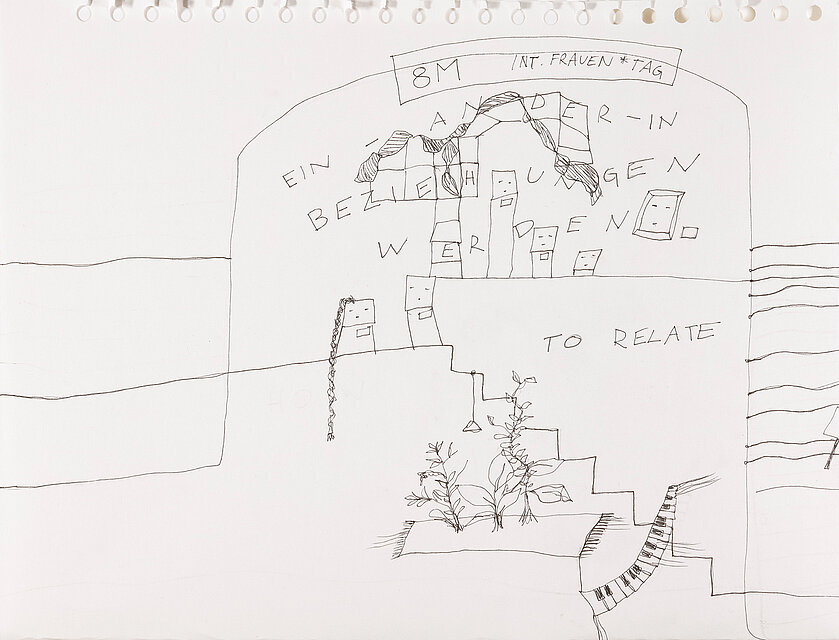 8M INT. FRAUEN*TAG
EIN - ANDER-IN
BEZIEHUNGEN
WERDEN
TO RELATE